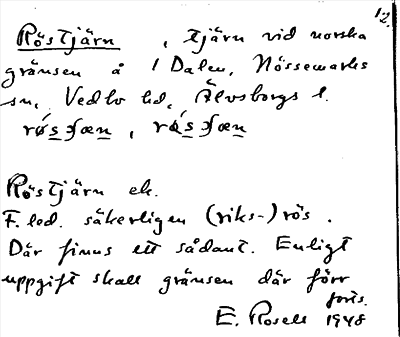 12.
Röstjärn , tjärn vid norska
gränsen å 1 Dalen, Nössemarks
sn, Vedbo hd, Älvsborgs l.
Röstjärn ek.
F. led. säkerligen (riks-)rös.
Där finns ett sådant. Enligt
uppgift skall gränsen där förr
forts.
E. Rosell 1948